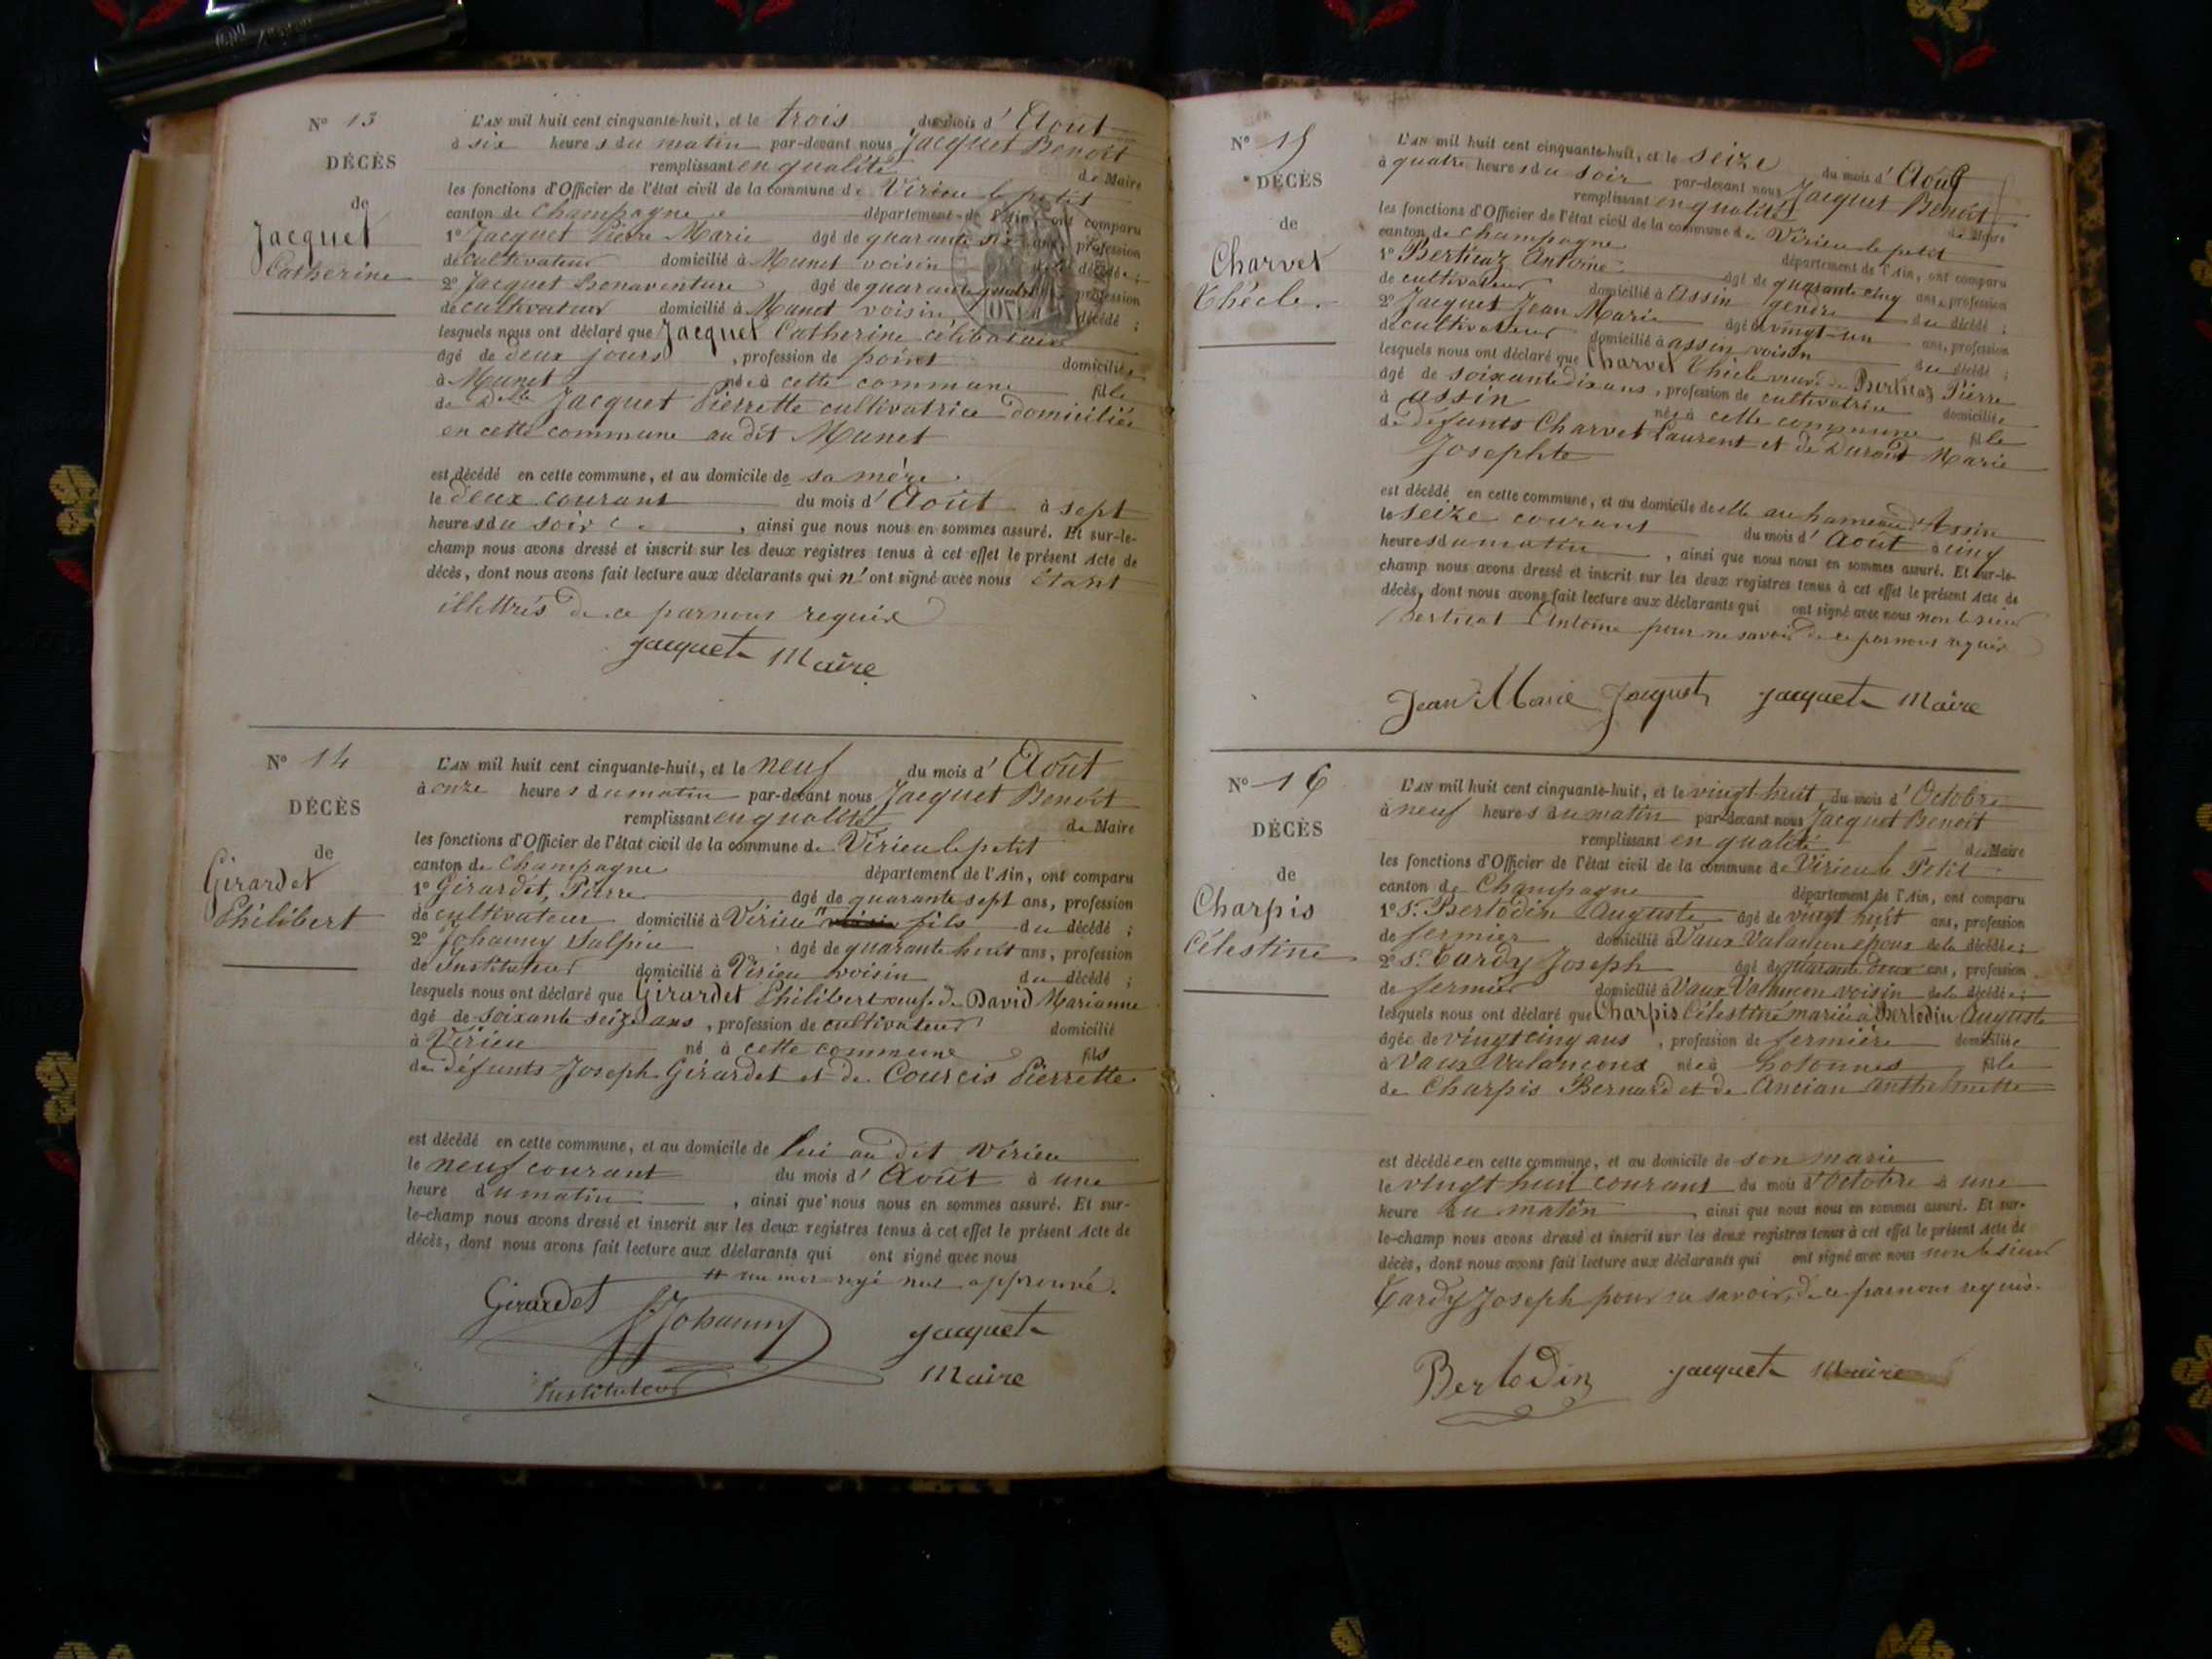 N° 13
DÉCÈS
de
Jacquet
Catherine
L'AN mil huit cent cinquante-huit, et le trois du mois d'Août
à six heures du matin par-devant nous Jacquet Benoit
remplissant en qualité de Maire
les fonctions d'Officier de l'état civil de la commune de Virieu le petit
canton de Champagne département de l'Ain, ont comparu
1° Jacquet Pierre Marie âgé de quarante six ans, profession
de cultivateur domicilié à Munet voisin de la décédée;
2° Jacquet Bonaventure âgé de quarante quatre profession
de cultivateur domicilié à Munet voisin d décédé;
lesquels nous ont déclaré que Jacquet Catherine célibataire
âgé de deux jours, profession de point domiciliée
à Munet née à cette commune fille
de Delle Jacquet Pierrette cultivatrice domiciliée
en cette commune au dit Munet
est décédé en cette commune, et au domicile de sa mère
le deux courant du mois d'Août à sept
heures du soir, ainsi que nous nous en sommes assuré. Et sur-le-
champ nous avons dressé et inscrit sur les deux registres tenus à cet effet le présent Acte de
décès, dont nous avons fait lecture aux déclarants qui n'ont signé avec nous étant
illettrés de ce par nous requis
Jacquet Maire
N° 14
DÉCÈS
de
Girardet
Philibert
L'AN mil huit cent cinquante-huit, et le neuf du mois d'Août
à onze heures du matin par-devant nous Jacquet Benoit
remplissant en qualité de Maire
les fonctions d'Officier de l'état civil de la commune de Virieu le petit
canton de Champagne département de l'Ain, ont comparu
1° Girardet, Pierre âgé de quarante sept ans, profession
de cultivateur domicilié à Virieu # voisin fils du décédé;
2° Johanny Sulpice âgé de quarante huit ans, profession
de Instituteur domicilié à Virieu voisin du décédé;
lesquels nous ont déclaré que Girardet Philibert veuf de David Marianne
âgé de soixante seize ans, profession de cultivateur domicilié
à Virieu né à cette commune fils
de défunts Joseph Girardet et de Courcis Pierrette
est décédé en cette commune, et au domicile de lui au dit Virieu
le neuf courant du mois d'Août à une
heure du matin, ainsi que nous nous en sommes assuré. Et sur-
le-champ nous avons dressé et inscrit sur les deux registres tenus à cet effet le présent Acte de
décès, dont nous avons fait lecture aux déclarants qui ont signé avec nous
# un mot rayé nul approuvé.
Girardet S. Johanny Jacquet
Instituteur Maire
N° 15
DÉCÈS
de
Charvet
Thècle
L'AN mil huit cent cinquante-huit, et le seize du mois d'Août
à quatre heures du soir par-devant nous Jacquet Benoit
remplissant en qualité de Maire
les fonctions d'Officier de l'état civil de la commune de Virieu le petit
canton de Champagne département de l'Ain, ont comparu
1° Berticaz Antoine âgé de quarante cinq ans, profession
de cultivateur domicilié à Assin gendre du décédé;
2° Jacquet Jean Marie âgé de vingt-un ans, profession
de cultivateur domicilié à assin voisin du décédé;
lesquels nous ont déclaré que Charvet Thècle veuve de Berticaz Pierre
âgé de soixante dix ans, profession de cultivatrice domiciliée
à assin née à cette commune fille
de défunts Charvet Laurent et de Marie
Josephte
est décédé en cette commune, et au domicile de elle au hameau d'Assin
le seize courant du mois d'Août à cinq
heures du matin, ainsi que nous nous en sommes assuré. Et sur-le-
champ nous avons dressé et inscrit sur les deux registres tenus à cet effet le présent Acte de
décès, dont nous avons fait lecture aux déclarants qui ont signé avec nous non le sieur
Berticat Antoine pour ne savoir de ce par nous requis
Jean Marie Jacquet Jacquet Maire
N° 16
DÉCÈS
de
Charpis
Célestine
L'AN mil huit cent cinquante-huit, et le vingt huit du mois d'Octobre
à neuf heures du matin par-devant nous Jacquet Benoit
remplissant en qualité de Maire
les fonctions d'Officier de l'état civil de la commune de Virieu le Petit
canton de Champagne département de l'Ain, ont comparu
1° Sr. Berlodin Auguste âgé de vingt huit ans, profession
de fermier domicilié à Vaux Valançon époux de la décédée;
2° Sr. Tardy Joseph âgé de quarante deux ans, profession
de fermier domicilié à Vaux Valançon voisin de la décédée;
lesquels nous ont déclaré que Charpis Célestine mariée à Berlodin Auguste
âgée de vingt cinq ans, profession de fermière domiciliée
à Vaux Valançons née à Hotonnes fille
de Charpis Bernard et de Ancian Anthelmette
est décédée en cette commune, et au domicile de son marie
le vingt huit courant du mois d'Octobre à une
heure du matin, ainsi que nous nous en sommes assuré. Et sur-
le-champ nous avons dressé et inscrit sur les deux registres tenus à cet effet le présent Acte de
décès, dont nous avons fait lecture aux déclarants qui ont signé avec nous non le sieur
Tardy Joseph pour ne savoir, de ce par nous requis.
Berlodin Jacquet Maire